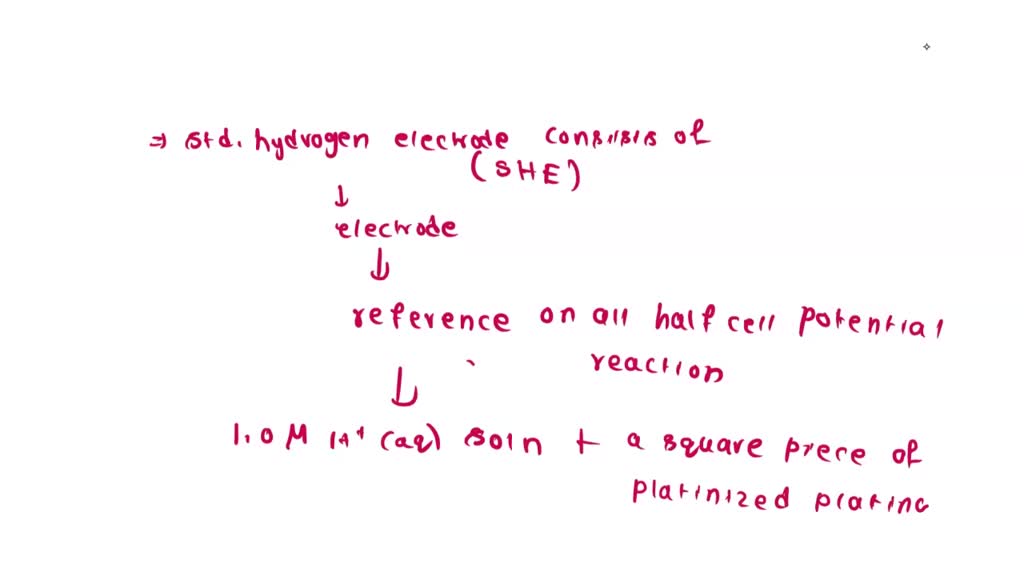 ⇒ std. hydrogen electrode consists of
(SHE)
↓
electrode
↓
reference on all half cell potential
reaction
↓
1.0 M H+ (aq) soln + a square piece of
platinized platinc